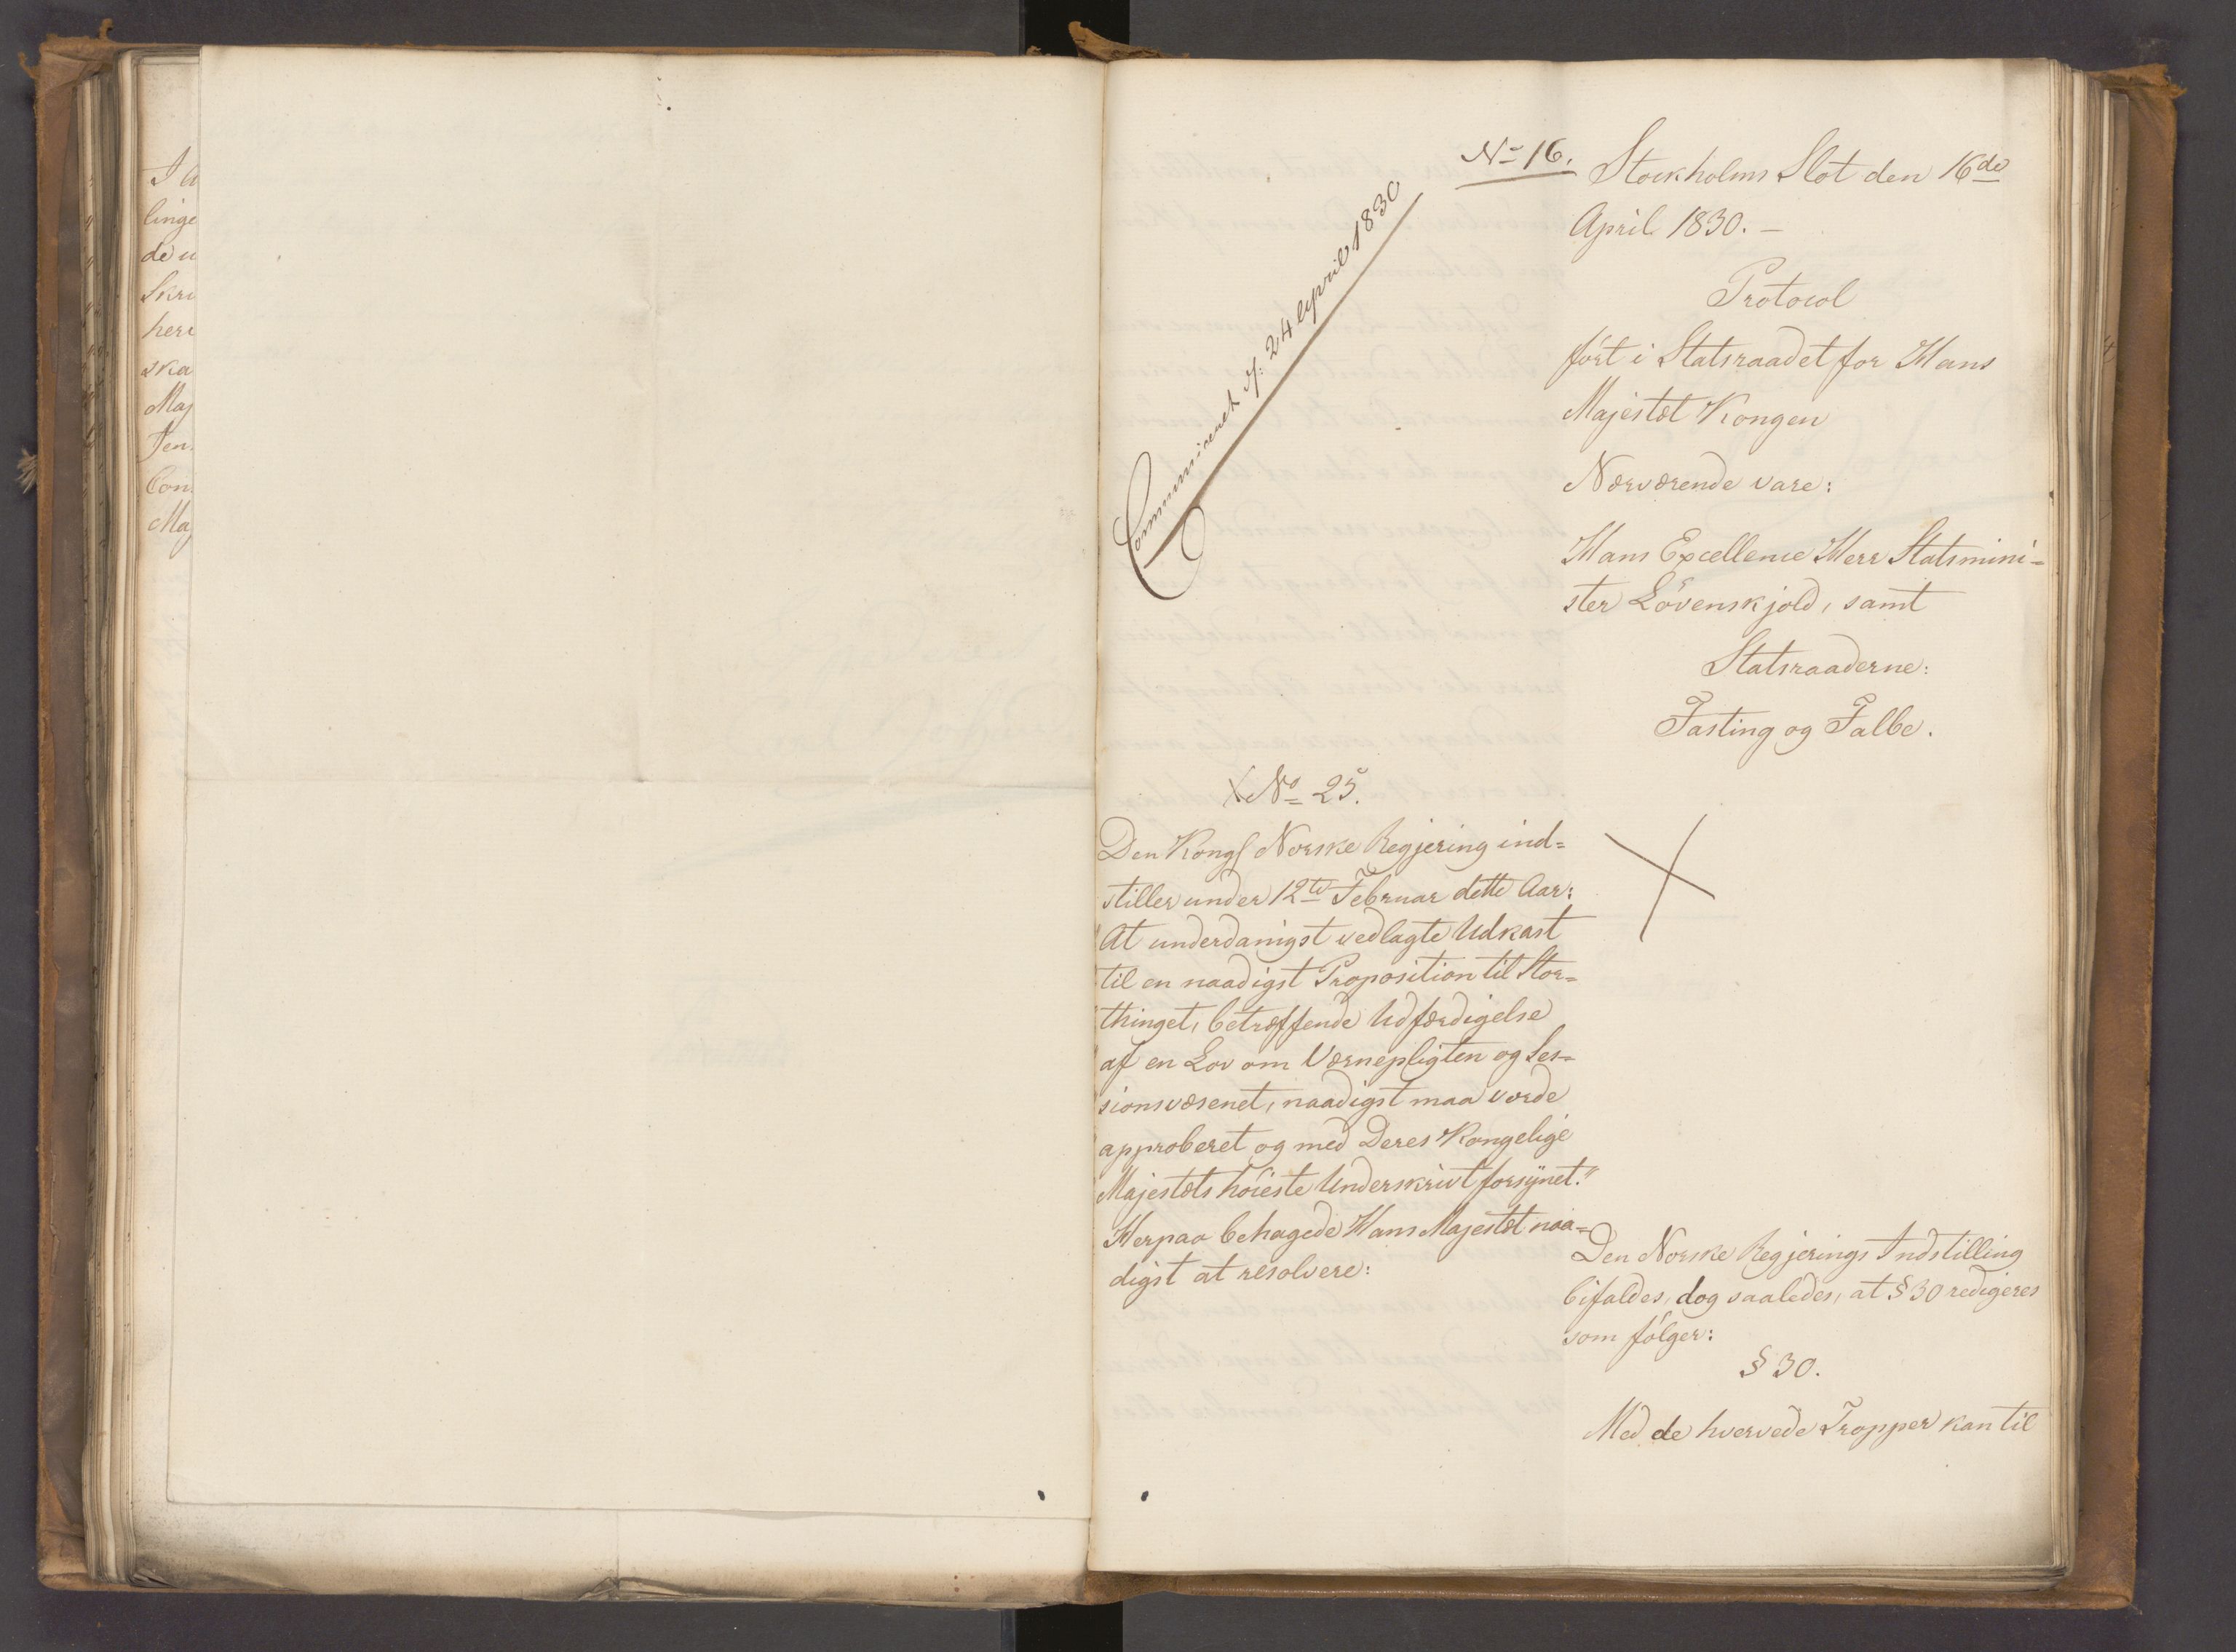 I
linge
de
Skri
herr
ska
Maj
Ten
Con
Maj
No 16.
Stockholms Slot den 16de
April 1830. –
Communiceret 24 April 1830
Protocol
fört i Statsraadet for Hans
Majestæt Kongen
Nærværende vare:
Hans Excellence Herr Statsmini=
ster Lövenskjold, samt
Statsraaderne:
Fasting og Falbe.
X No 25.
Den Kongl Norske Regjering ind=
stiller under 12te Februar dette Aar:
At underdanigst vedlagte Udkast
til en naadigst Proposition til Stor=
thinget, betræffende Udfærdigelse
af en Lov om Værnepligten og Ses=
sionsvæsenet, naadigst maa vorde
approberet og med Deres Kongelige
Majestæts höieste Underskrivt forsynet."
Herpaa behagede Hans Majestæt naa=
digst at resolvere:
X
Den Norske Regjerings Indstilling
bifaldes, dog saaledes, at § 30 redigeres
som fölger:
§ 30.
Med de hvervede Tropper kan til